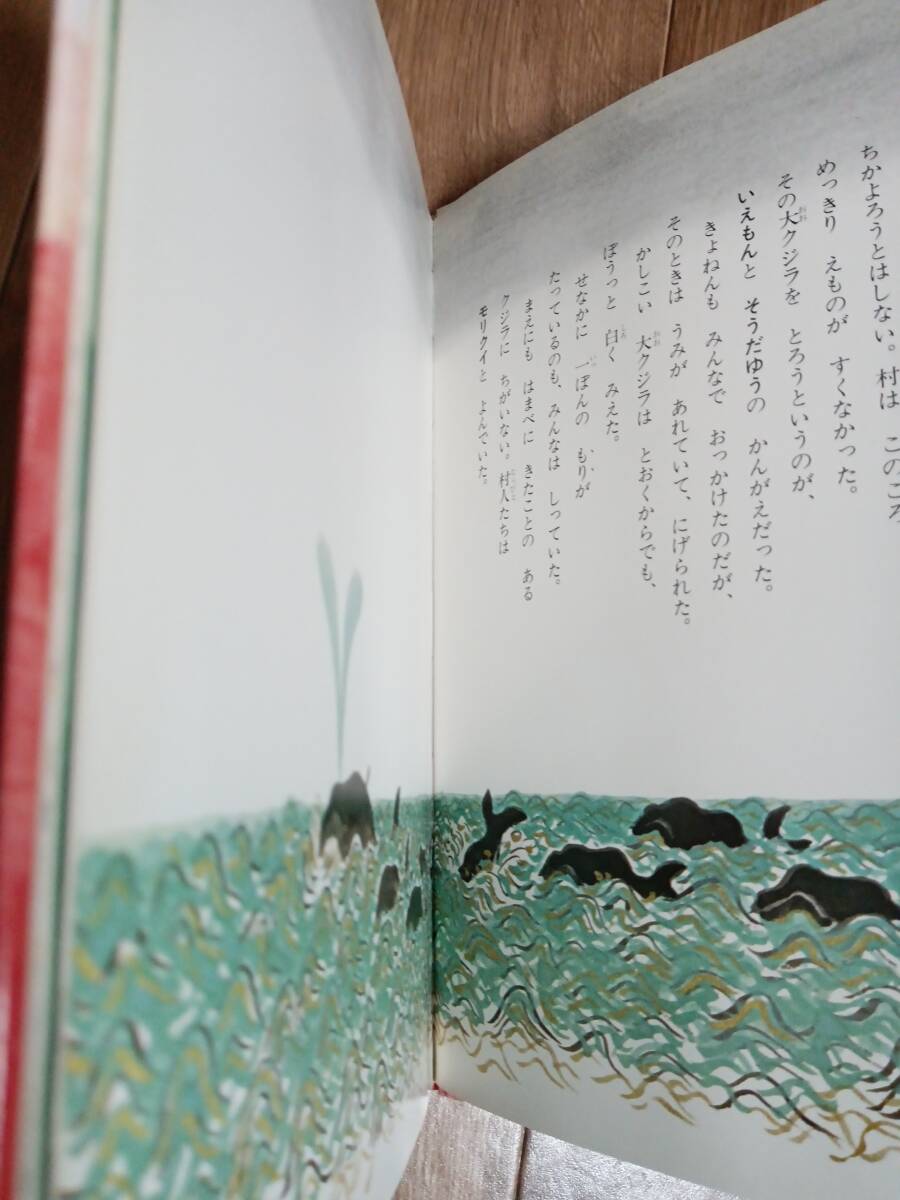 ちかよろうとはしない。村は　このころ
めっきり　えものが　すくなかった。
その大クジラを　とろうというのが、
いえもんと　そうだゆうの　かんがえだった。
きょねんも　みんなで　おっかけたのだが、
そのときは　うみが　あれていて、にげられた。
かしこい　大クジラは　とおくからでも、
ぼうっと　白く　みえた。
せなかに　一ぽんの　もりが
たっているのも、みんなは　しっていた。
まえにも　はまべに　きたことの　ある
クジラに　ちがいない。村人たちは
モリクイと　よんでいた。